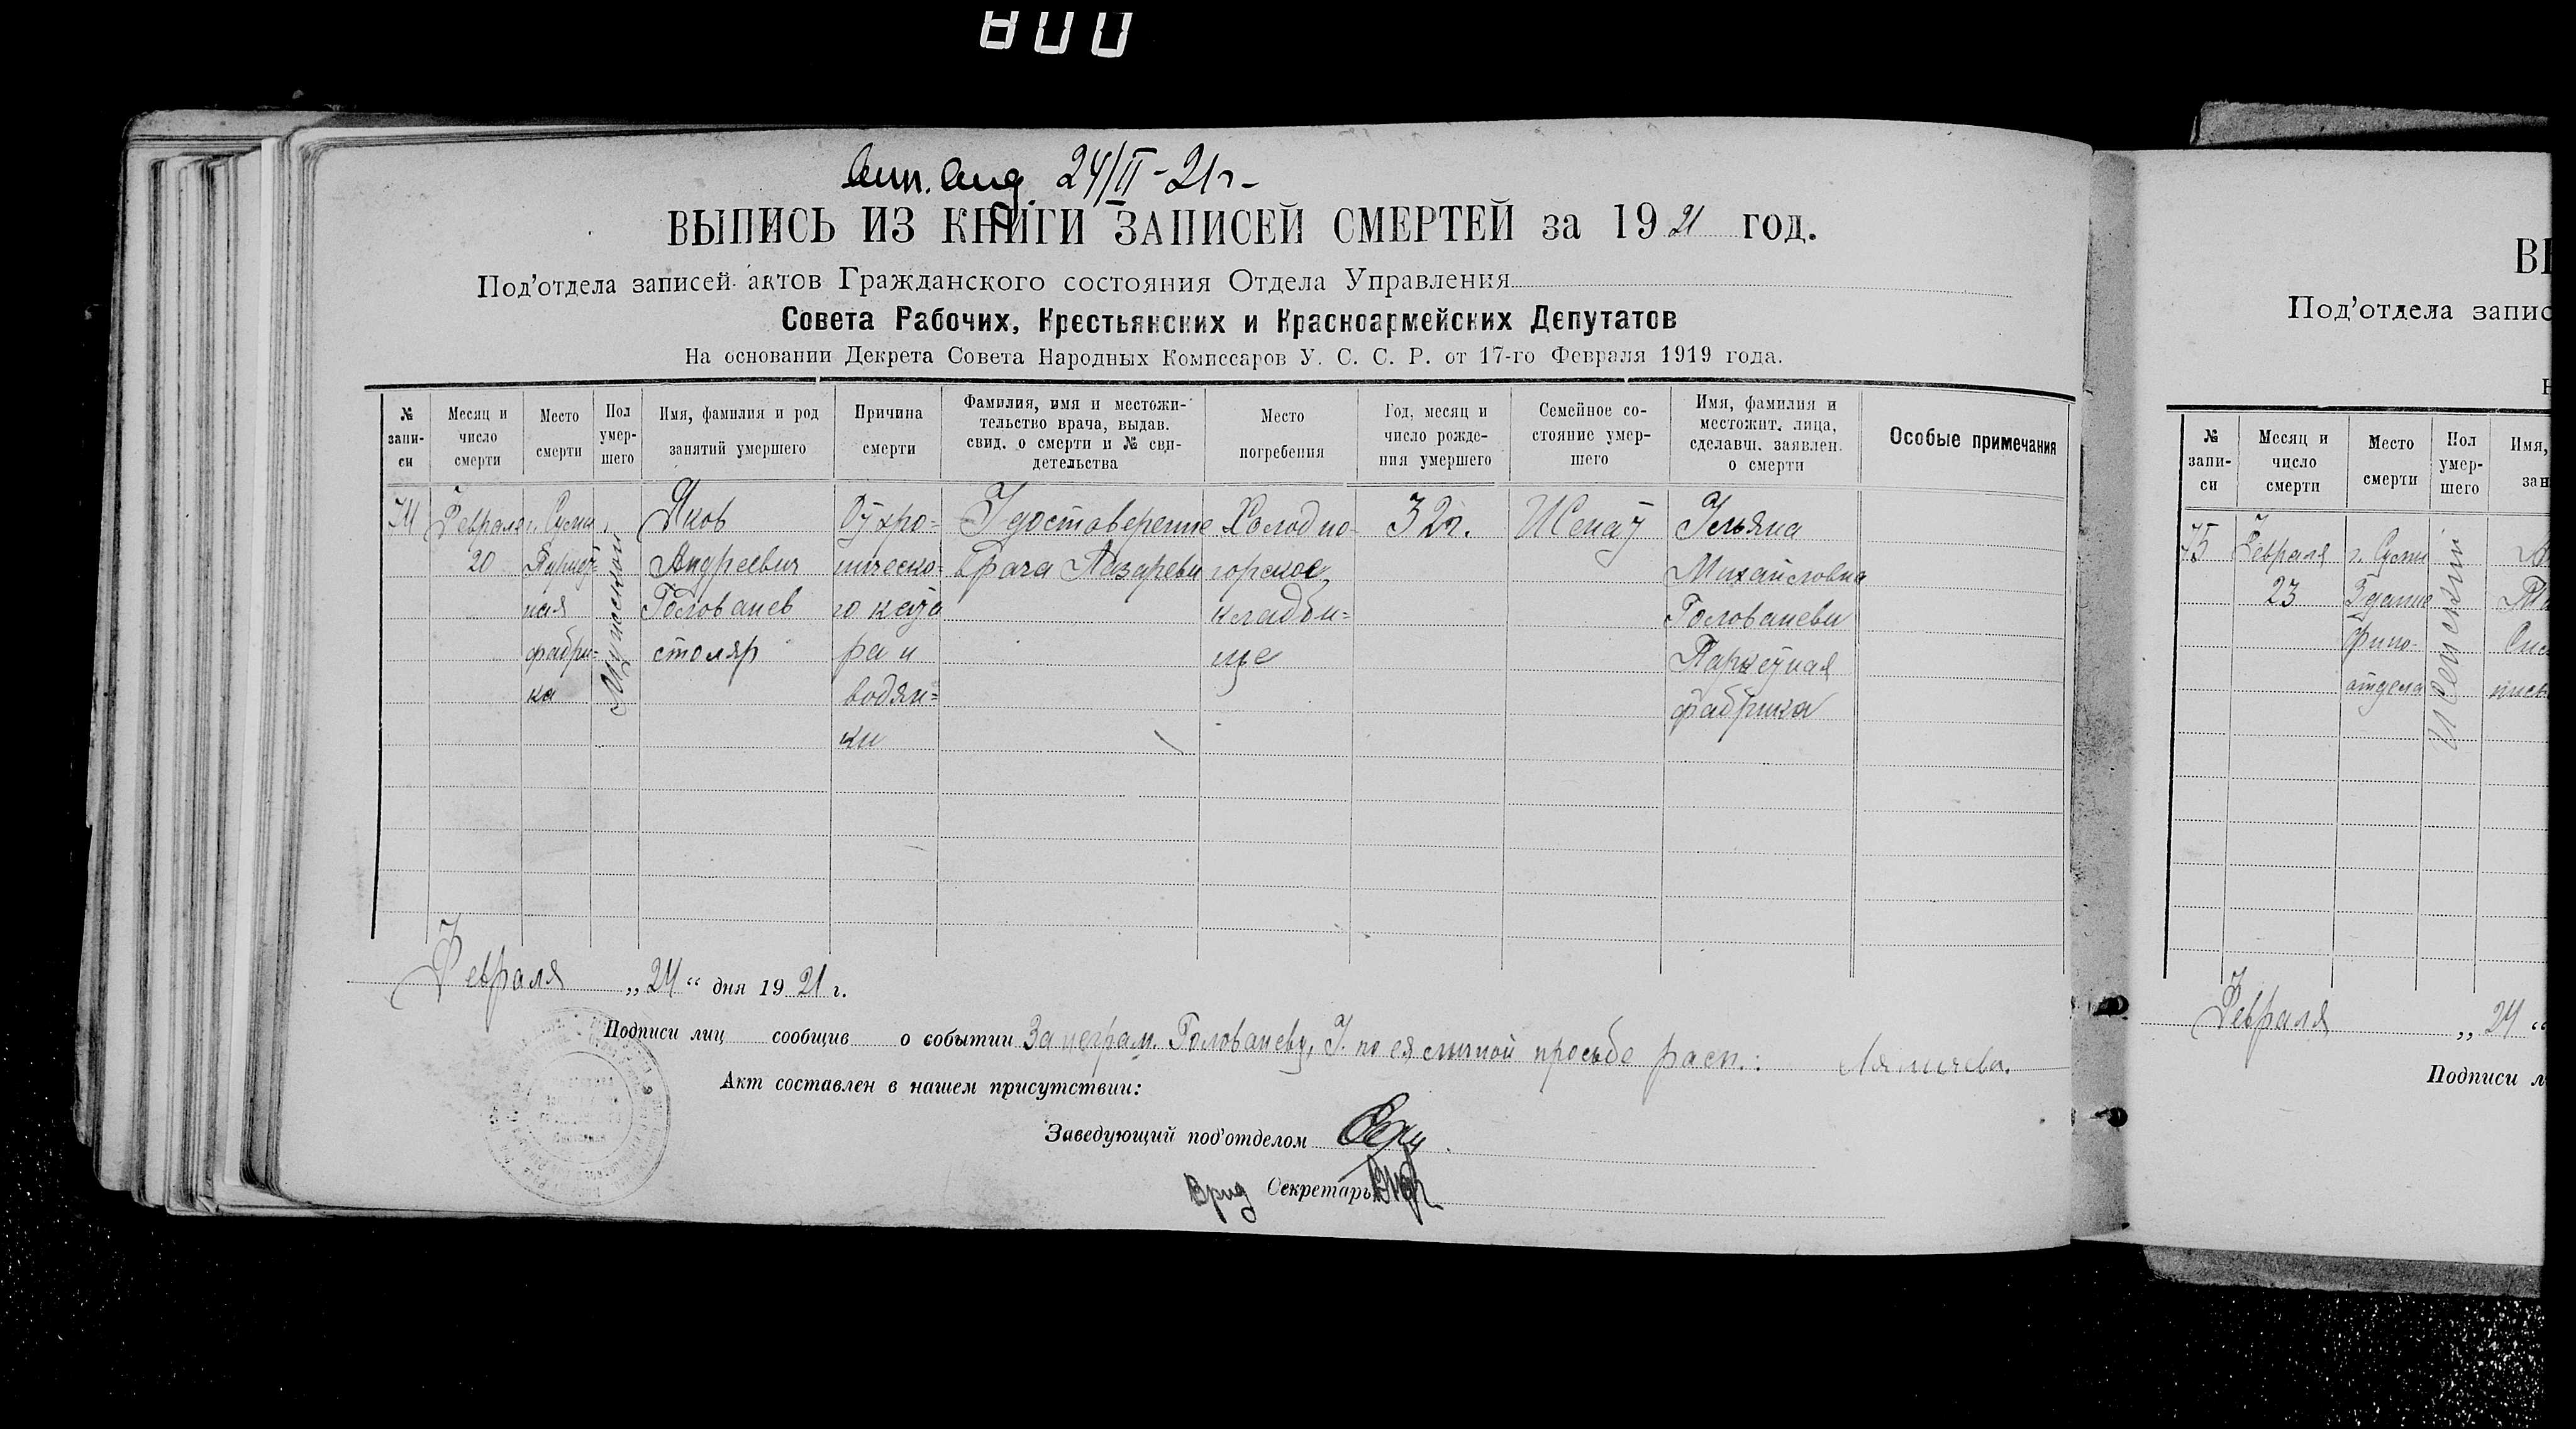 800
24/II-21г-
ВЫПИСЬ ИЗ КНИГИ ЗАПИСЕЙ СМЕРТЕЙ за 1921 год.
Под'отдела записей актов Гражданского состояния Отдела Управления
Совета Рабочих, Крестьянских и Красноармейских Депутатов
На основании Декрета Совета Народных Комиссаров У. С. С. Р. от 17-го Февраля 1919 года.
№ запи-си
Месяц и число смерти
Место смерти
Пол умер-шего
Имя, фамилия и род занятий умершего
Причина смерти
Фамилия, имя и местожи-тельство врача, выдав. свид. о смерти и № сви-детельства
Место погребения
Год, месяц и число рожде-ния умершего
Семейное со-стояние умер-шего
Имя, фамилия и местожит. лица, сделавш. заявлен. о смерти
Особые примечания
74
Февраля
20
г. Сумы,
ная
фабри=
ка
Мужской
Яков
Андреевич
Голованев
столяр
От хро=
ническо=
го ката
ра и
водян=
ки
Удостоверение
врача
Холодно-
горское
кладби=
ще
32г.
Женат
Ульяна
Михайловна
Голованева
Паркетная
фабрика
Февраля „24“ дня 1921 г.
Подписи лиц сообщив о событии За неграм. Голованеву, У. по ея личной просьбе расп.:
Акт составлен в нашем присутствии:
Заведующий под'отделом
Врид Секретарь
ВЫ
Под'отдела запис
№ запи-си
Месяц и число смерти
Место смерти
Пол умер-шего
Имя,
зан
75
Февраля
23
г. Сумы
Здание
отдела
Женский
Февраля „24“
Подписи л